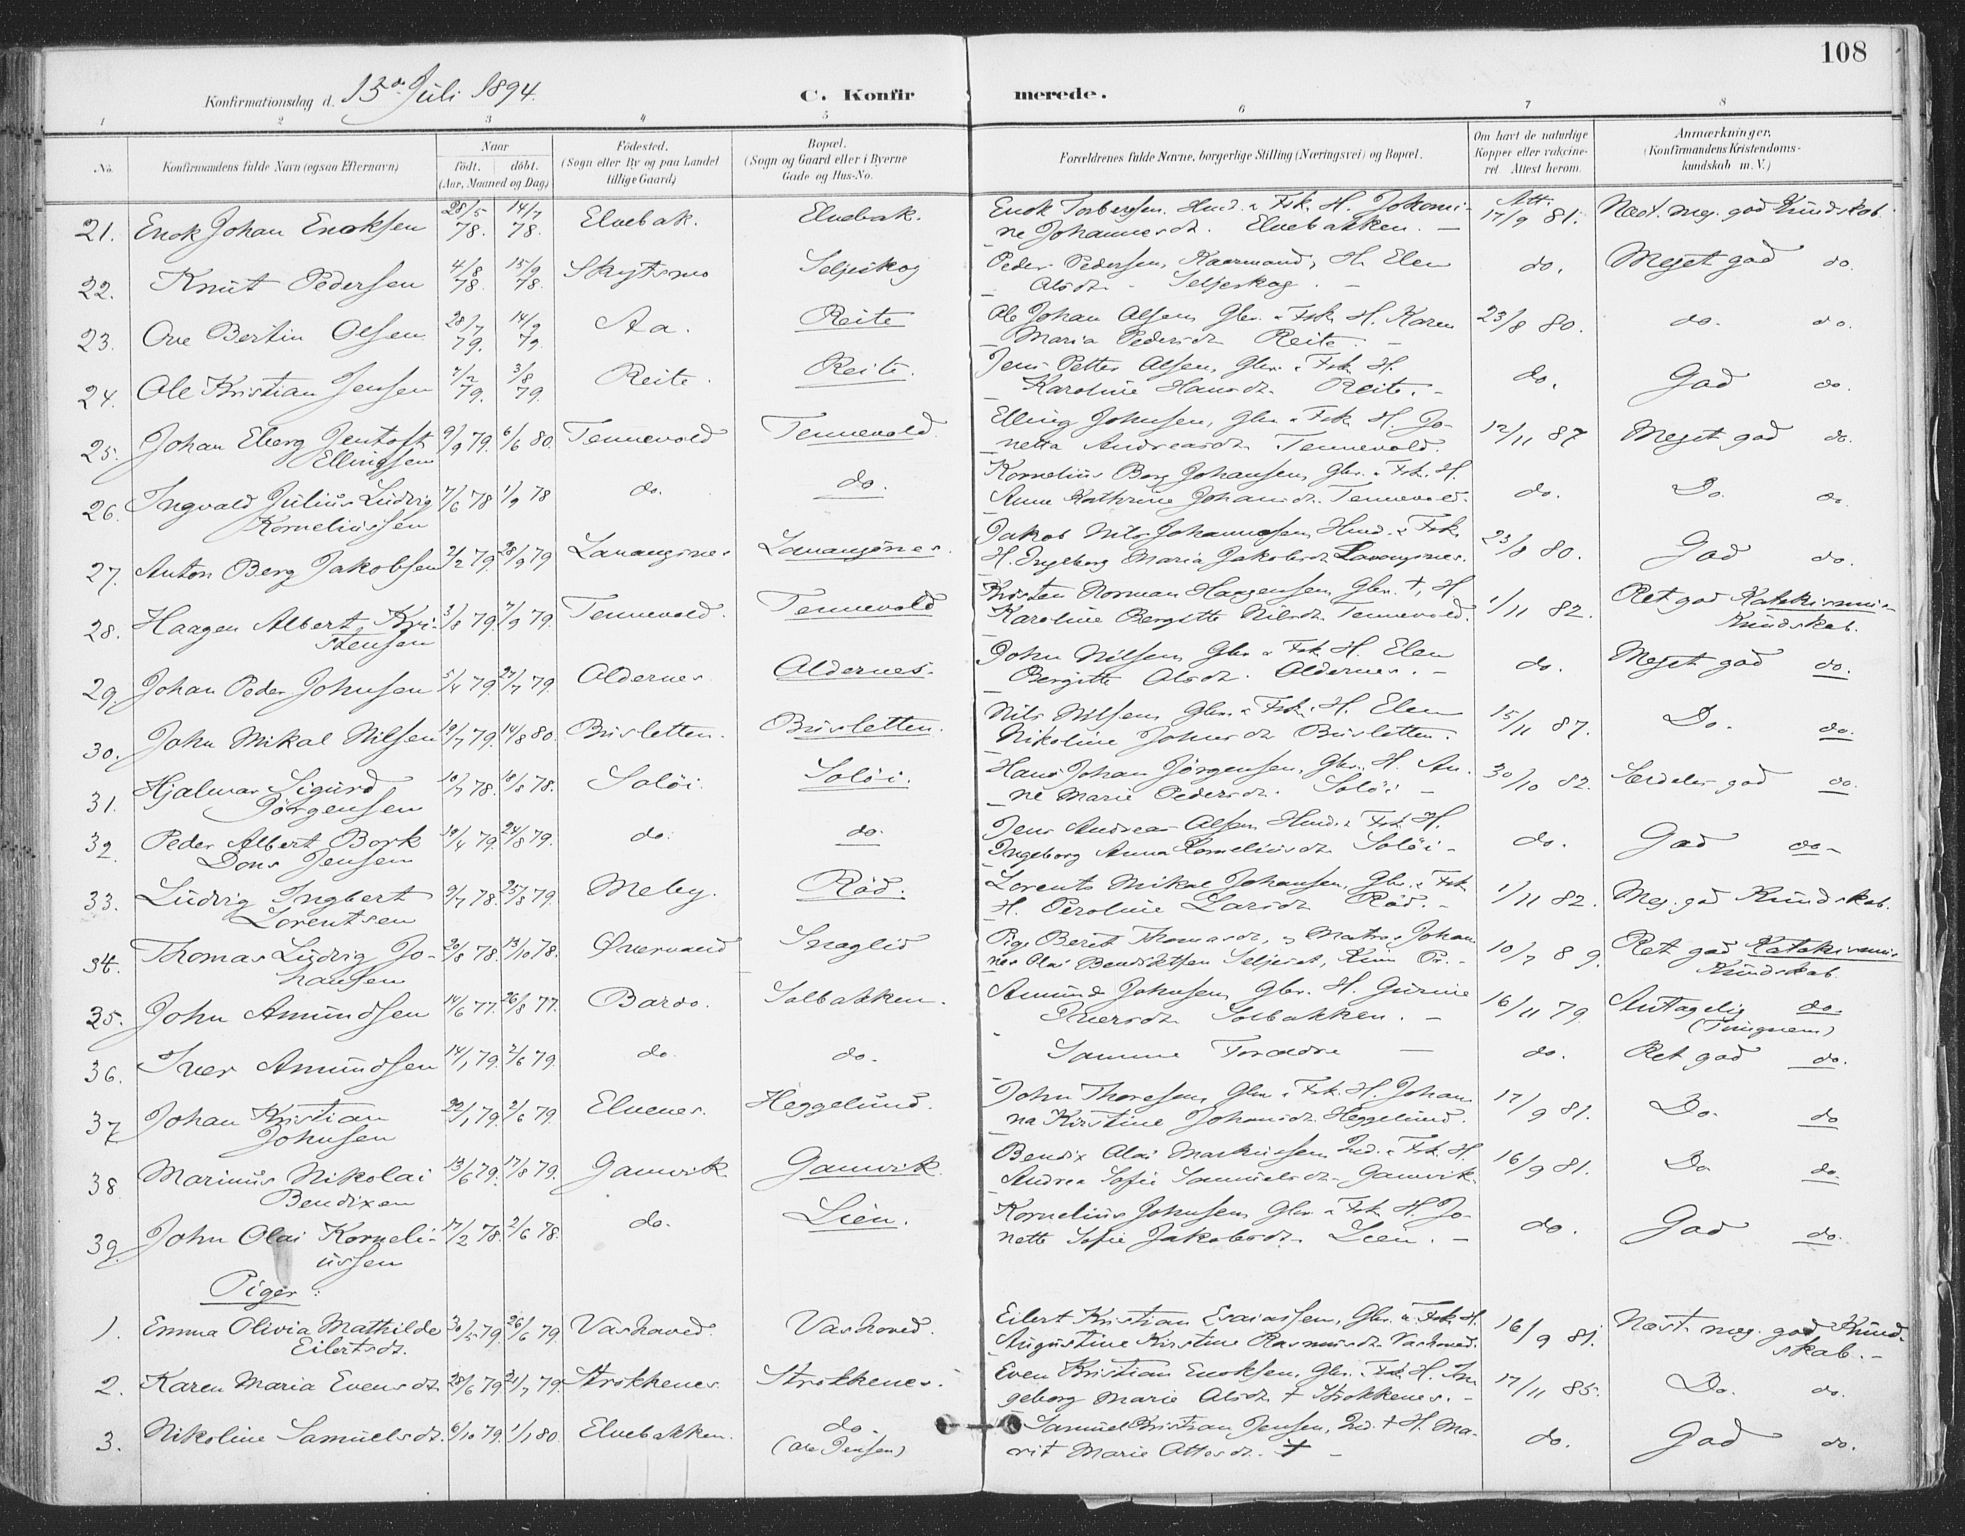 108
Konfirmationsdag d. 15de Juli 1894. C. Konfirmerede.
1 2 3 4 5 6 7 8
No. Konfirmandens fulde Navn (ogsaa Efternavn) Naar født. døbt. (Aar, Maaned og Dag) Fødested. (Sogn eller By og paa Landet tillige Gaard) Bopæl. (Sogn og Gaard eller i Byerne Gade og Hus-No. Forældrenes fulde Navne, borgerlige Stilling (Næringsvei) og Bopæl. Om havt de naturlige Kopper eller vakcineret Attest herom. Anmærkninger. (Konfirmandens Kristendomskundskab m. V.)
21. Enok Johan Enoksen 28/5 78. 14/7 78. Elvebak. Elvebak. Enok Torbergsen Hmd. & Fsk. H. Johanne Johannesdt. Elvebakken. — Att. 17/9 81. Næst. meg. god Kundskab.
22. Knut Pedersen 4/8 78. 15/9 78. Skytsmo Seljeskog Peder Pedersen, Kaarmand, H. Elen Olsdt. - Seljeskog. — do. Meget god do.
23. Ove Bertin Olsen 28/7 79. 14/9 79. Aa. Reite Ole Johan Olsen, Gbr. & Fsk. H. Karen Maria Pedersdt. Reite. — 23/8 80. do. do.
24. Ole Kristian Jensen 2/2 79. 3/8 79. Reite. Reite. Jens Petter Olsen, Gbr. & Fsk. H. Karoline Hansdt. Reite. - do. God do.
25. Johan Eberg Jentoft Ellingsen 9/9 79. 6/6 80. Tennevold Tennevold. Elling Johnsen, Gbr. & Fsk. H. Jonetta Andreasdt. Tennevold. 12/11 87 Meget god do.
26. Ingvald Julius Ludvig Korneliussen 7/6 78 1/9 78 do. do. Kornelius Berg Johansen, Gbr. & Fsk. H. Anne Kathrine Johansdt. Tennevold. do. Do. do.
27. Anton Berg Jakobsen 2/2 79. 28/9 79 Lavangsnes Lavangsnes. Jakob Nils Johannesen, Hmd. & Fsk. H. Ingeborg Maria Jakobsdt. Lavangsnes. 23/8 80. God do.
28. Haagen Albert Kristensen 3/8 79. 7/9 79. Tennevold. Tennevold Kristen Norman Haagensen, Gbr. †, H. Karoline Bergitte Nilsdt. Tennevold. 1/11 82. Ret god Katekismuskundskab.
29. Johan Peder Johnsen 5/4 79. 27/7 79. Oldernes. Aldernes. John Nilsen, Gbr. & Fsk. H. Elen Bergitte Olsdt. Aldernes. — do. Meget god do.
30. John Mikal Nilsen 19/7 79. 14/8 80. Brusletten. Brusletten. Nils Nilsen, Gbr. & Fsk. H. Elen Nikoline Johnsdt. Brusletten. 15/11 87. Do. do.
31. Hjalmar Sigurd Jørgensen 10/7 78. 18/8 78. Soløi. Soløi. Hans Johan Jørgensen, Gbr. H. Anne Marie Pedersdt. Soløi — 30/10 82. Særdeles god do.
32. Peder Albert Bork Dons Jensen 19/4 79. 24/8 79. do. do. Jens Andreas Olsen, Hmd. & Fsk. H. Ingeborg Anna Korneliusdt. Soløi — do. God do—
33. Ludvig Ingbert Lorentsen 9/7 78. 25/8 79. Meby. Rød. Lorents Mikal Johansen, Gbr. & Fsk. H. Peroline Larsdt. Rød. - 1/11 82. Meg. god Kundskab.
34. Thomas Ludvig Johansen 20/8 78. 13/10 78. Øvervand Snoglid Pige Berit Thomasdt, og Matros Johannes Olai Bendiktsen Seljeset, Pr. - 10/7 89. Ret god Katekismuskundskab.
35. John Amundsen 14/6 77. 26/8 77. Bardo. Solbakken. Amund Johnsen, Gbr. H. Gurine Iversdt. Solbakken. — 16/11 79. Antagelig do. (Tungnem)
36. Iver Amundsen 14/1 79. 2/6 79. do. do. Samme Forældre — do. Ret god do.
37. Johan Kristian Johnsen 22/1 79. 2/6 79. Elvenes. Heggelund. John Thoresen, Gbr. & Fsk. H. Johanna Kirstine Johansdt. Heggelund. 17/9 81. Do. do
38. Marinus Nikolai Bendixen 13/6 79. 17/8 79. Gamvik Gamvik. Bendix Olai Markussen, Ind. & Fsk. H. Andrea Sofie Samuelsdt. Gamvik. 16/9 81. Do do.
39. John Olai Korneliussen 17/2 78. 2/6 78. do. Lien. Kornelius Johnsen, Gbr. & Fsk. H. Jonette Sofie Jakobsdt. Lien. — do. God do.
Piger:
1. Emma Olivia Mathilde Eilertsdt. 30/5 79. 26/6 79. Vashoved. Vashoved. Eilert Kristian Esaiassen, Gbr. & Fsk. H. Augustine Kirstine Rasmusdt. Vashoved. 16/9 81. Næst. meg. god Kundskab. —
2. Karen Maria Evensdt. 28/6 79. 21/7 79. Strokkenes. Strokkenes. Even Kristian Enoksen, Gbr. & Fsk. H. Ingeborg Marie Olsdt. † Strokkenes. - 17/11 85. Do. do.
3. Nikoline Samuelsdt. 6/10 79. 1/1 80. Elvebakken. do. (Ole Jensen) Samuel Kristian Jensen, Ind. † H. Marit Marie Ottosdt. † — do. God do.